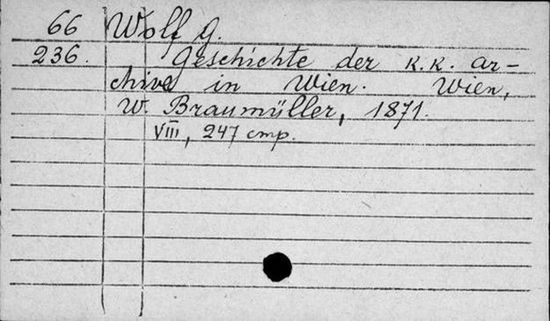 66 Wolf G.
236. Geschichte der k.k. Ar-
chive in Wien. Wien,
W. Braumüller, 1871.
VIII, 247 стр.